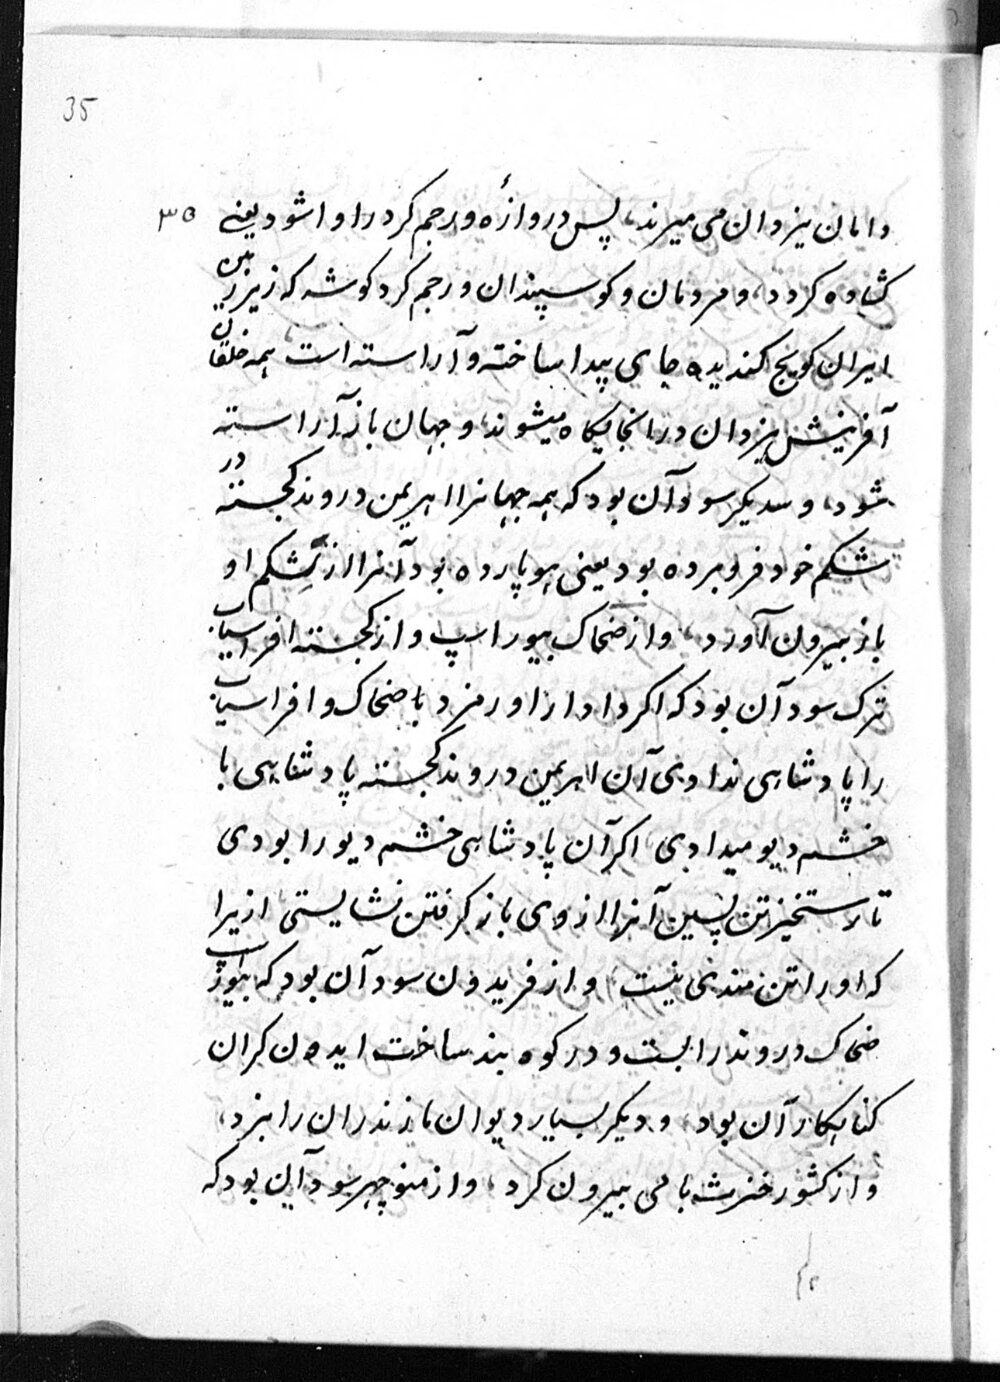 35
۳۵
دامان یزدان می میرند، پس دروازهٔ ورجم کرد را واشود یعنی
کشاده کردد، و مردمان و کوسپندان ورجم کرد کوشه که زیر زمین
ایران کویج کندیده جای پیدا ساخته و آراسته است همه خلقان
آفرینش یزدان در انجایکاه میشوند، و جهان باز آراسته
شود، و سدیکر سود آن بود که همه جهانرا اهریمن دروند کجسته در
شکم خود فرو برده بود یعنی هوپارده بود آنرا از شکم او
باز بیرون آورد، و از ضحاک بیوراسپ و از کجسته افراسیاب
ترک سود آن بود که اکر دادار اورمزد با ضحاک و افراسیاب
را پادشاهی ندادی آن اهریمن دروند کجسته پادشاهی با
خشم دیو میدادی، اکر آن پادشاهی خشم دیو را بودی
تا رستخیز تن پسین آنرا از وی باز کرفتن نشایستی ازیرا
که او را تن مندی نیست، و از فریدون سود آن بود که بیوراسپ
ضحاک دروند را بست و در کوه بند ساخت ایدون کران
کناهکار آن بود، و دیکر بسیار دیوان مازندران را بزد،
و از کشور خنرشه بامی بیرون کرد، و از منوچهر سود آن بود که